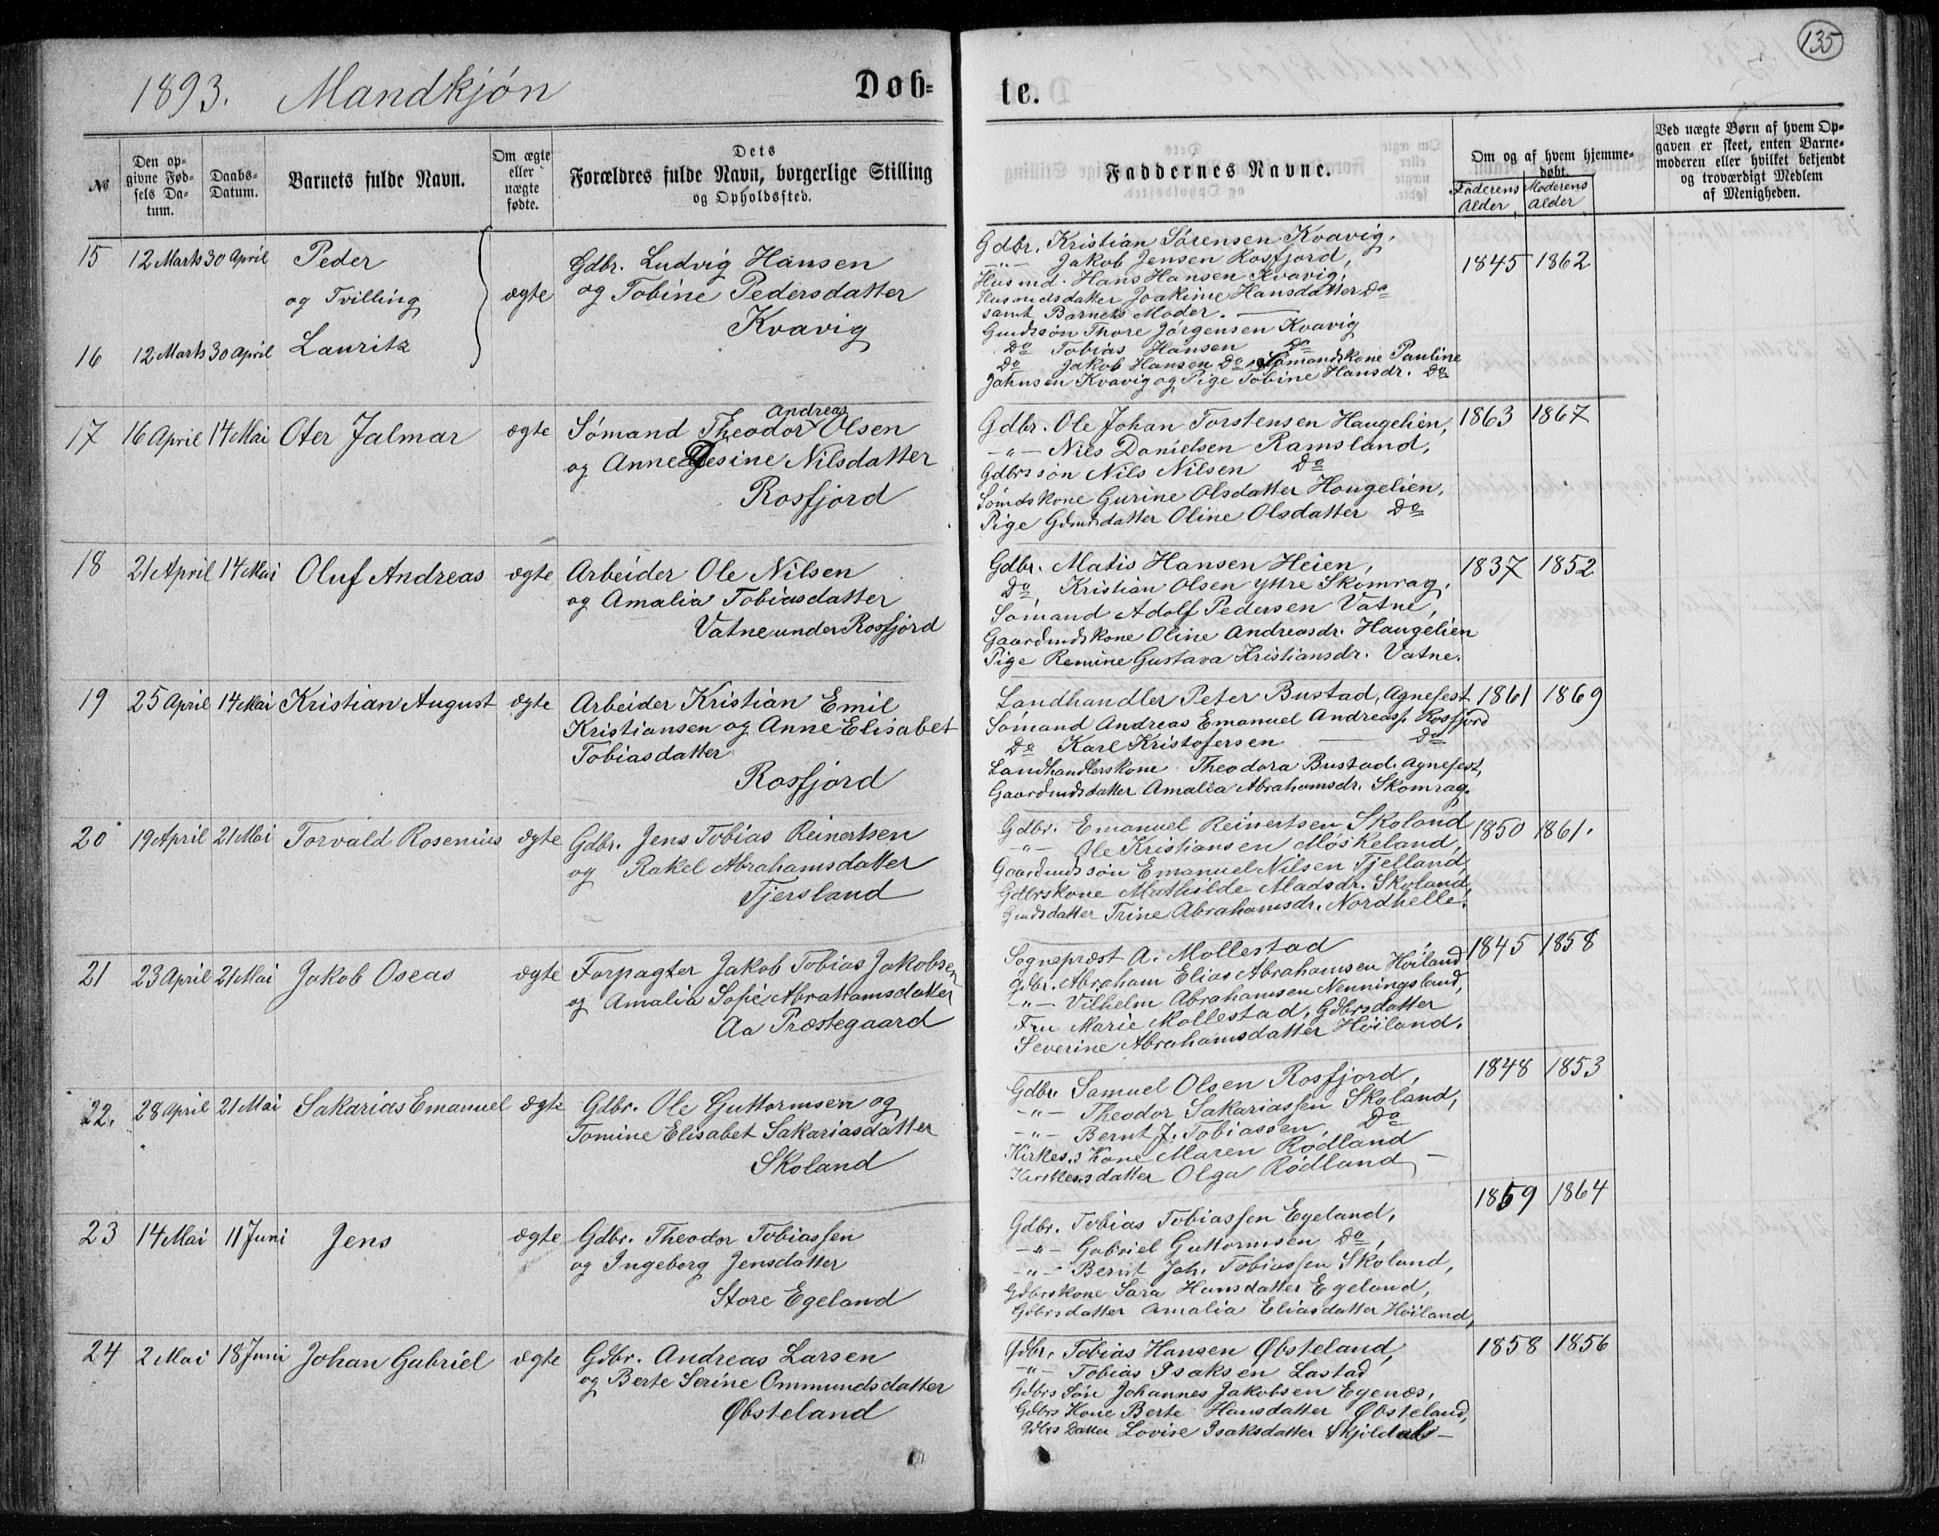 135
1893. Mandkjøn
Døb-
te.
№
Den op-
givne Fød-
sels Da-
tum.
Daabs-
Datum.
Barnets fulde Navn.
Om ægte
eller
uægte
fødte.
Dets
Forældres fulde Navn, borgerlige Stilling
og Opholdssted.
Faddernes Navne.
Om og af hvem hjemme-
døbt.
Faderens
Alder
Moderens
Alder
Ved uægte Børn af hvem Op-
gaven er skeet, enten Barne-
moderen eller hvilket bekjendt
og troværdigt Medlem
af Menigheden.
15 12 Marts 30 April Peder
og Tvilling
16 12 Marts 30 April Lauritz
ægte
Gdbr. Ludvig Hansen
og Tobine Pedersdatter
Kvavig
Gdbr. Kristian Sørensen Kvavig,
-"- Jakob Jensen Rosfjord,
Husmd. Hans Hansen Kvavig,
Husmdsdatter Joakime Hansdatter Do
samt Barnets Moder.
Gmdssøn Thore Jørgensen Kvavig
Do Tobias Hansen Do
Do Jakob Hansen Do, Sømandskone Pauline
Jahnsen Kvavig og Pige Tobine Hansdr. Do
1845 1862
17 16 April 14 Mai Oter Jalmar ægte
Andreas
Sømand Theodor Olsen
og Anne Gesine Nilsdatter
Rosfjord
Gdbr. Ole Johan Torstensen Haugelien,
-"- Nils Danielsen Ramsland,
Gdbrssøn Nils Nilsen Do
Sømdskone Gurine Olsdatter Hougelien,
Pige Gdmdsdatter Oline Olsdatter Do
1863 1867
18 21 April 14 Mai Oluf Andreas ægte
Arbeider Ole Nilsen
og Amalia Tobiasdatter
Vatne under Rosfjord
Gdbr. Matis Hansen Heien,
Do, Kristian Olsen Yttre Skomrag,
Sømand Adolf Pedersen Vatne,
Gaardmdskone Oline Andreasdr. Haugelien
Pige Remine Gustava Kristiansdr. Vatne.
1837 1852
19 25 April 14 Mai Kristian August ægte
Arbeider Kristian Emil
Kristiansen og Anne Elisabet
Tobiasdatter
Rosfjord
Landhandler Peter Bustad, Agnefest
Sømand Andreas Emanuel Andreass. Rosfjord
Do Karl Kristofersen Do
Landhandlerskone Theodora Bustad, Agnefest,
Gaardmdsdatter Amalia Abrahamsdr. Skomrag.
1861 1869
20 19 April 21 Mai Torvald Rosenius ægte
Gdbr. Jens Tobias Reinertsen
og Rakel Abrahamsdatter
Tjersland
Gdbr. Emanuel Reinertsen Skoland
-"- Ole Kristiansen Møskeland,
Gaardmdssøn Emanuel Nilsen Tjelland,
Gdbrskone Mathilde Madsdr. Skoland,
Gmdsdatter Trine Abrahamsdr. Nordhelle.
1850 1861.
21 23 April 21 Mai Jakob Oseas ægte
Forpagter Jakob Tobias Jakobsen
og Amalia Sofie Abrahamsdatter
Aa Præstegaard
Sognepræst A. Mollestad
Gdbr. Abraham Elias Abrahamsen Høiland
-"- Vilhelm Abrahamsen Nenningsland,
Fru Marie Mollestad, Gdbrsdatter
Severine Abrahamsdatter Høiland.
1845 1858
22. 28 April 21 Mai Sakarias Emanuel ægte
Gdbr. Ole Guttormsen og
Tomine Elisabet Sakariasdatter
Skoland
Gdbr. Samuel Olsen Rosfjord,
-"- Theodor Sakariassen Skoland,
-"- Bernt J. Tobiassen, Do
Kirkes.s Kone Maren Rødland
Kirkes.sdatter Olga Rødland
1848 1853
23 14 Mai 11 Juni Jens ægte
Gdbr. Theodor Tobiassen
og Ingeborg Jensdatter
Store Egeland
Gdbr. Tobias Tobiassen Egeland,
-"- Gabriel Guttormsen Do,
-"- Bernt Joh. Tobiassen Skoland,
Gdbrskone Sara Hansdatter Egeland,
Gdbrsdatter Amalia Eliasdatter Høiland,
1859 1864
24 2 Mai 18 Juni Johan Gabriel ægte
Gdbr. Andreas Larsen
og Berte Serine Ommundsdatter
Øbsteland
Gdbr. Tobias Hansen Øbsteland,
-"- Tobias Isaksen Lastad
Gdbrs Søn Johannes Jakobsen Egenæs,
Gdbrs Kone Berte Hansdatter Øbsteland,
Gdbrs Datter Lovise Isaksdatter
1858 1856